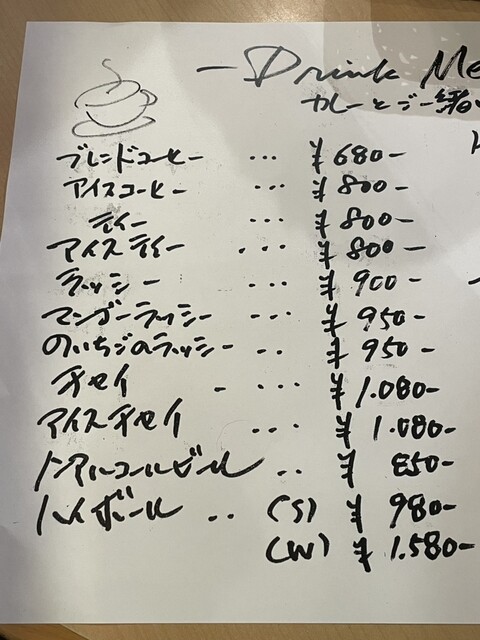 - Drink Me
カレーとご一緒
ブレンドコーヒー ... ¥680-
アイスコーヒー ... ¥800-
ティー ... ¥800-
アイスティー ... ¥800-
ラッシー ... ¥900-
マンゴーラッシー ... ¥950-
のいちごのラッシー ... ¥950-
チャイ . ... ¥1.080-
アイスチャイ ... ¥1.080-
ノンアルコールビール .. ¥850-
ハイボール .. (S) ¥980-
(W) ¥1.580-